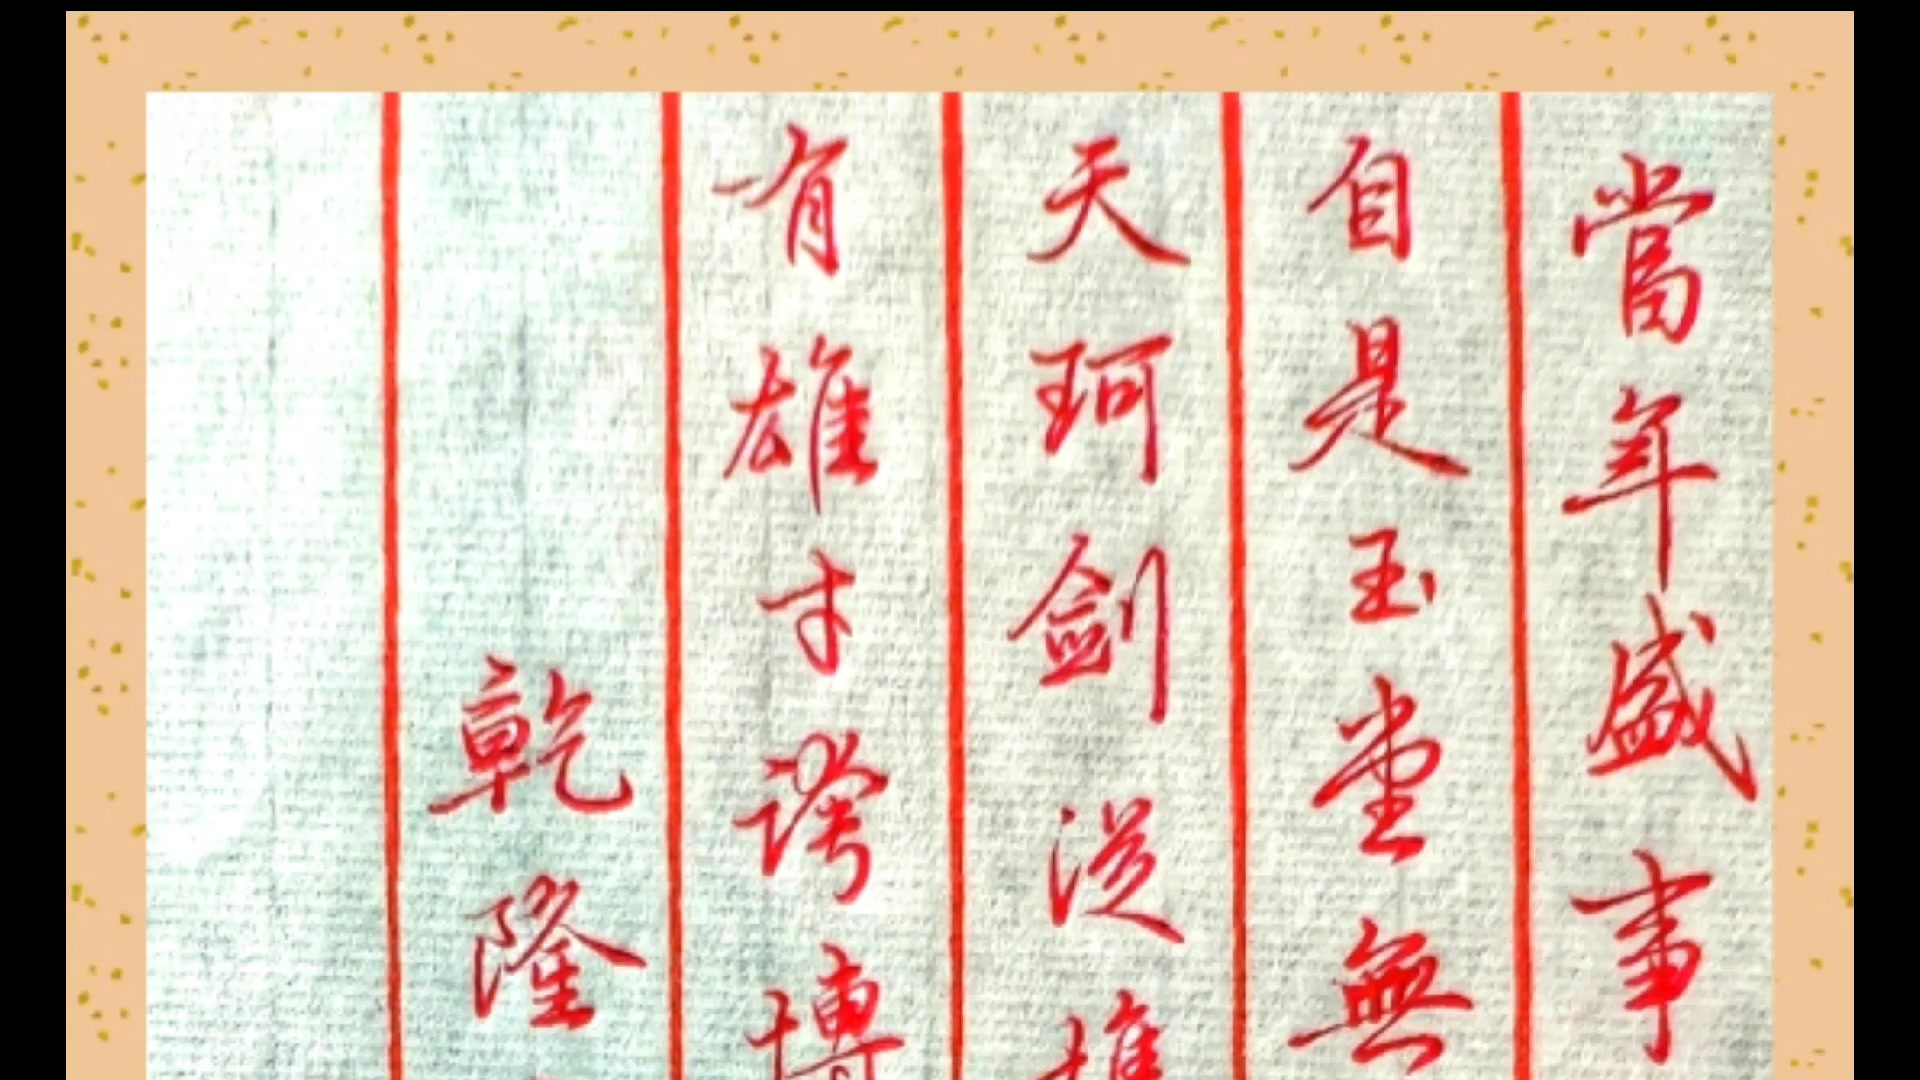 當年盛事
自是玉堂無
天珂劍從
有雄才誇博
乾隆